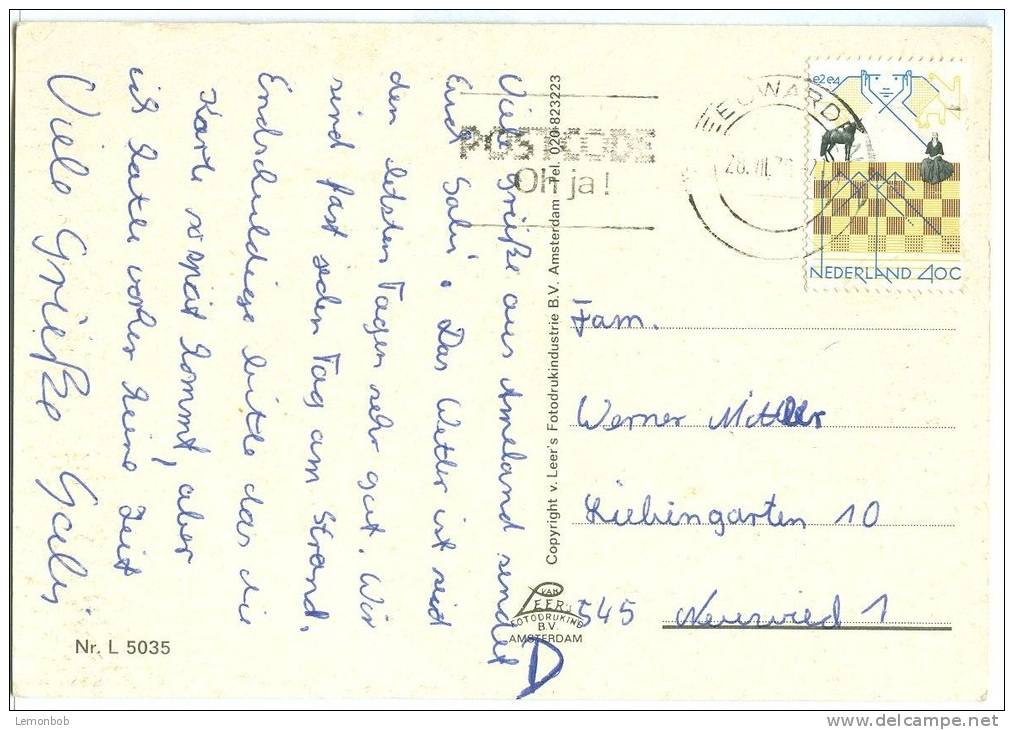 Viele Grüße aus Ameland sendet
Euch Gabi. Das Wetter ist seid
den letsten Tagen sehr gut. Wir
sind fast jeden Tag am Strand.
Endschuldiege bitte das die
Karte so spät kommt, aber
ich hatte vorher keine Zeit
Viele Grüße Gabi
Nr. L 5035
Copyright v. Leer's Fotodrukindustrie B.V. Amsterdam - Tel. 020-823223
VAN
LEER'S
FOTODRUKIND
B.V.
AMSTERDAM
POSTCODE
Oh ja!
LEEUWARDEN
28.III.7
e2e4
NEDERLAND 40C
Fam.
Werner Mittler
Liebingarten 10
545 Neuwied 1
D
Lemonbob
delcampe.net